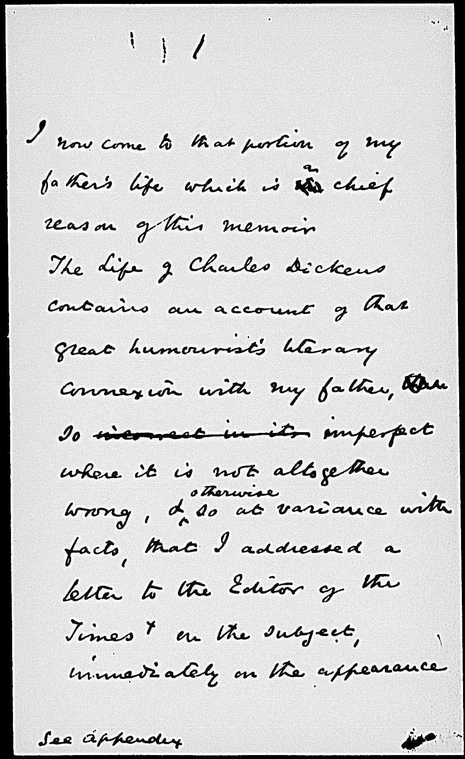 I now come to that portion of my
father's life which is chief
reason of this memoir
The Life of Charles Dickens
contains an account of that
great humourist's literary
connexion with my father,
so incorrect in its imperfect
where it is not altogether
otherwise
wrong, & so at variance with
facts, that I addressed a
letter to the Editor of the
Times + on the subject,
immediately on the appearance
See appendix